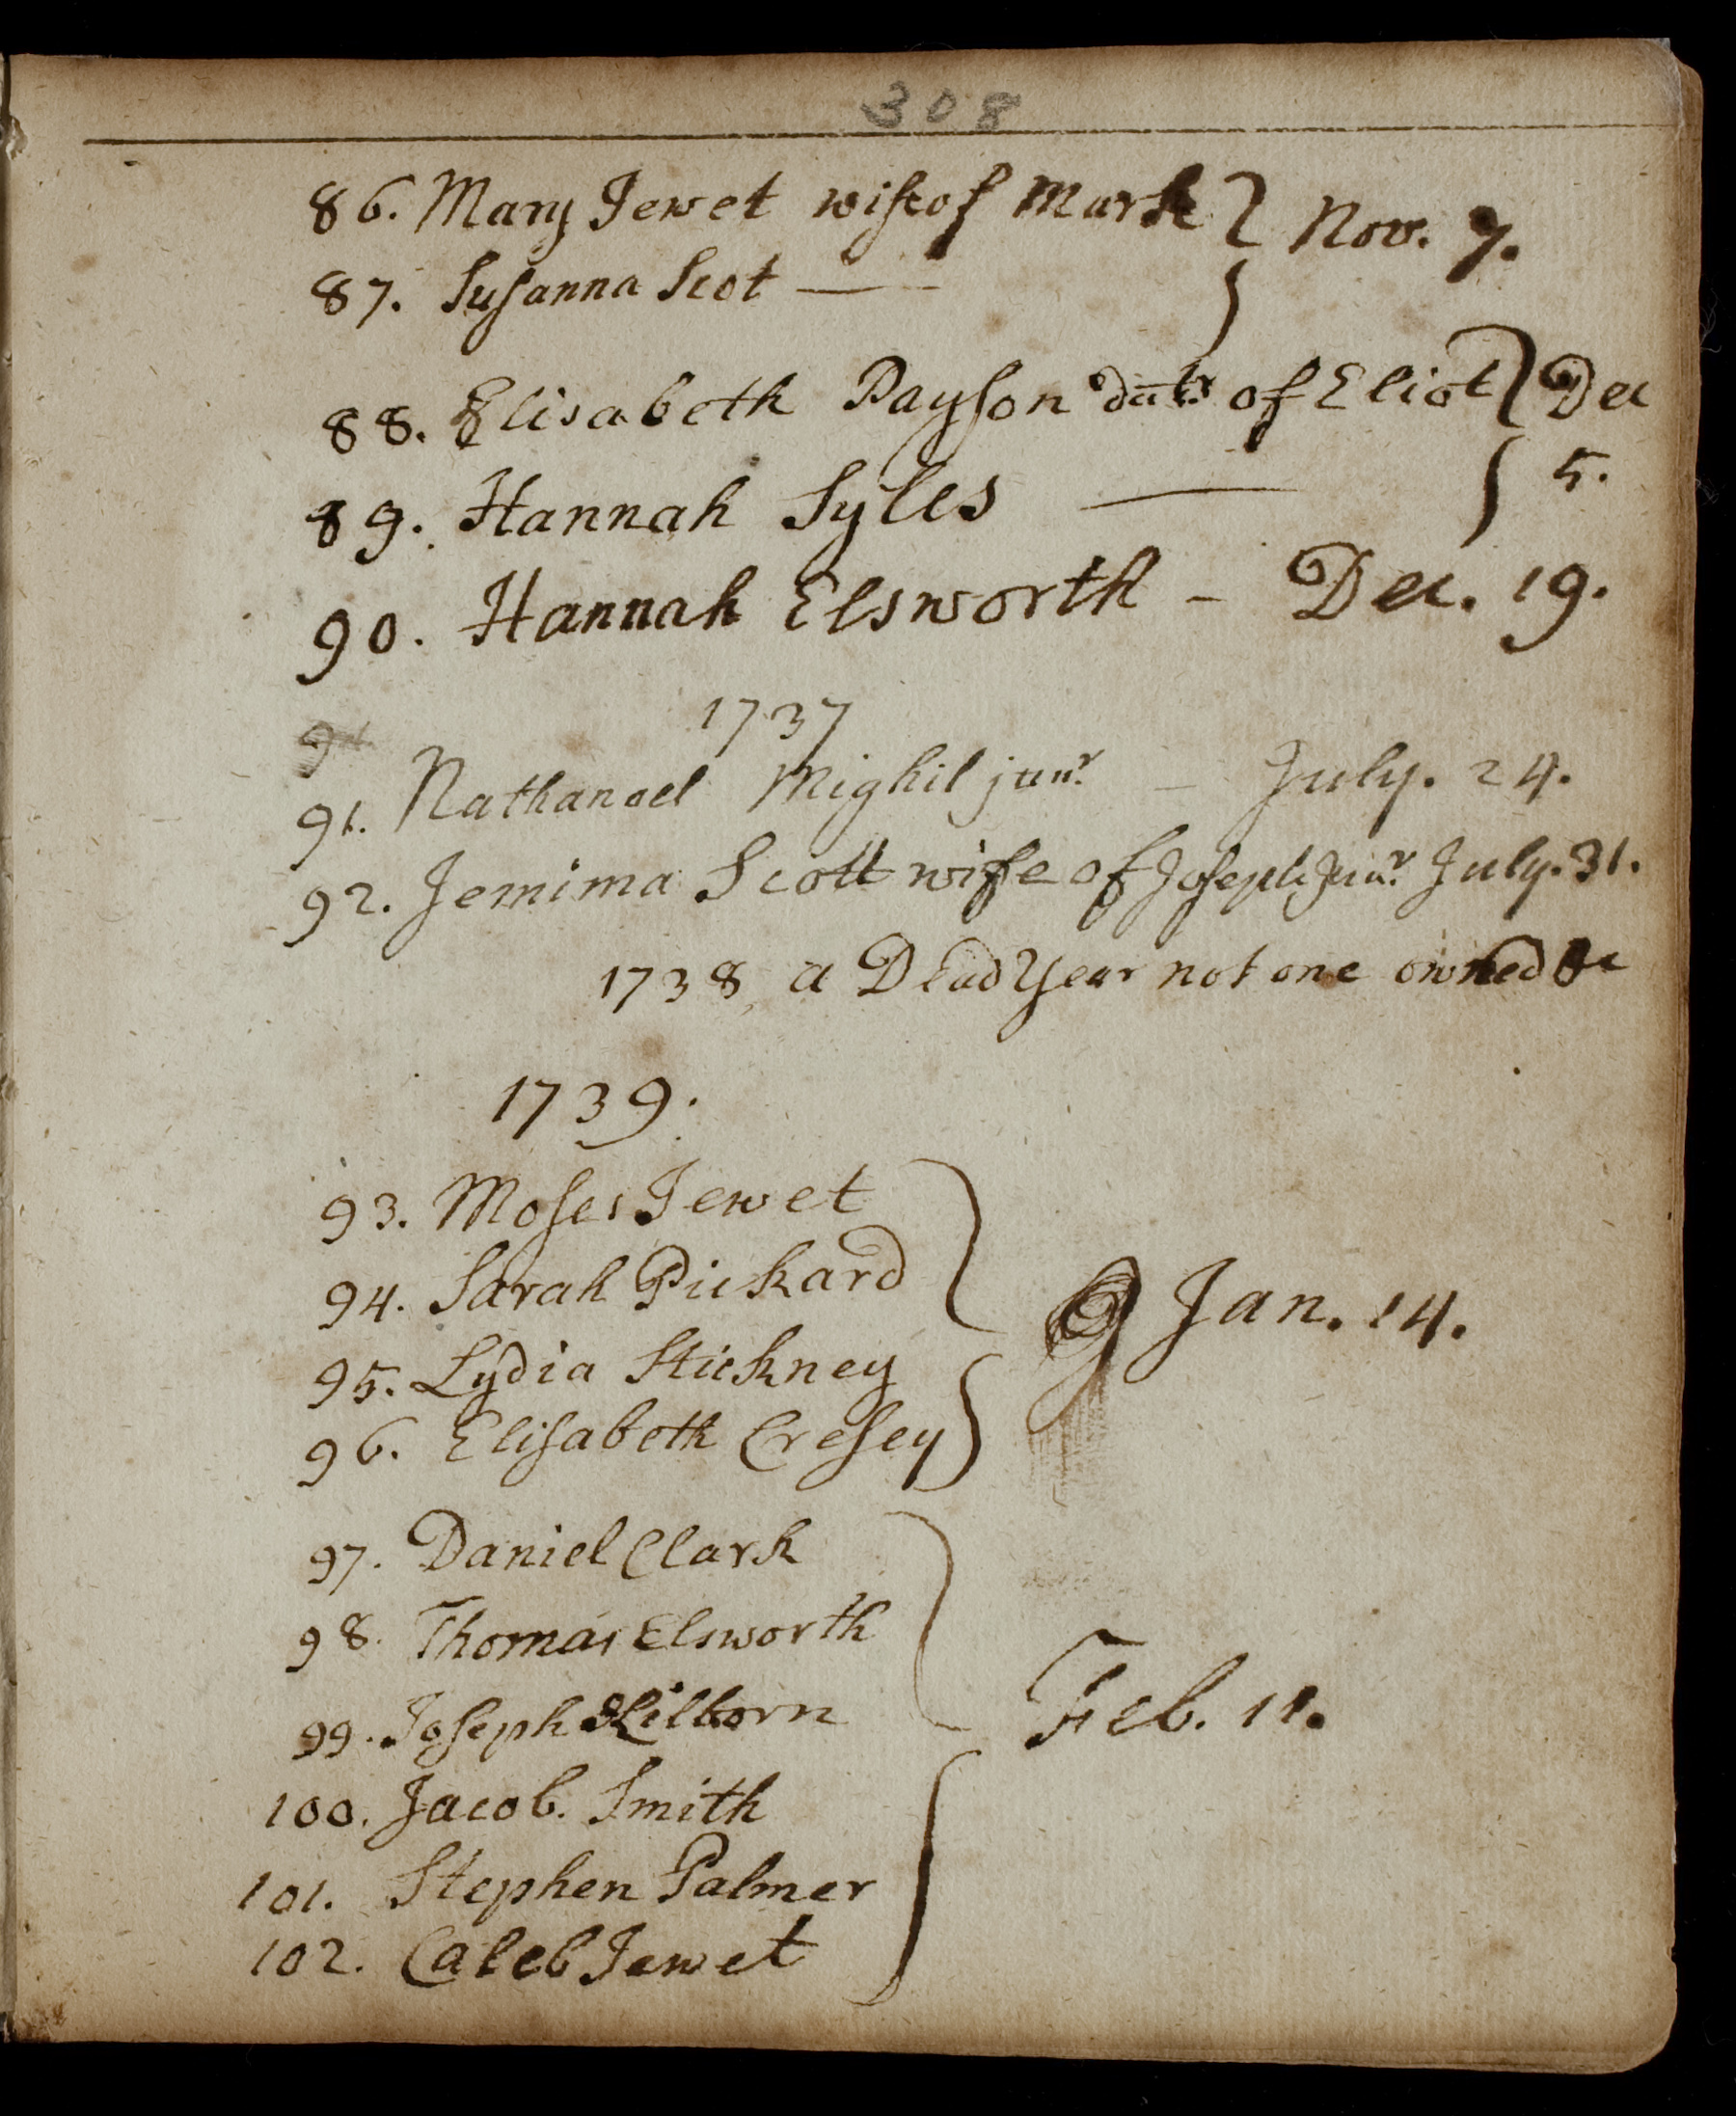 308
86. Mary Jewet wife of Mark } Nov. 7.
87. Susanna Scot —
88. Elisabeth Payson datr of Eliot } Dec
89. Hannah Syles — 5.
90. Hannah Elsworth - Dec. 19.
1737
91
91. Nathanael Mighil junr. - July. 24.
92. Jemima Scott wife of Joseph Junr. July. 31.
1738, a Dead Year not one owned &c
1739.
93. Moses Jewet
94. Sarah Pickard
Jan. 14.
95. Lydia Stickney
96. Elisabeth Cresey
97. Daniel Clark
98. Thomas Elsworth
99. Joseph Kilborn
Feb. 11.
100. Jacob. Smith
101. Stephen Palmer
102. Caleb Jewet